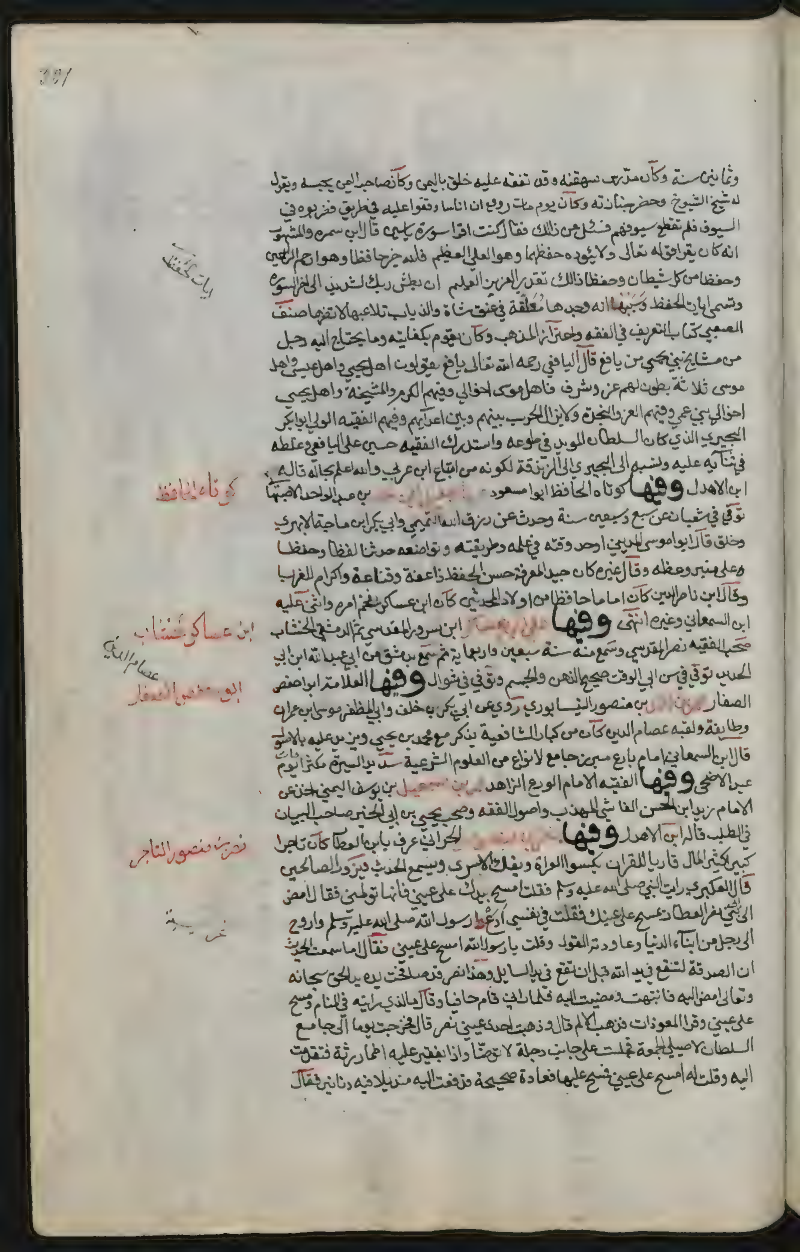 وثمانين سنة وكان مدرس سهفنة وقد تفقه عليه خلق باليمن وكان صاحب اليمن يحبه ويقول
له شيخ الشيوخ وحضر جنازته وكان يوم مات وروي ان اناسا وقفوا عليه في طريق فضربوه في
السيوف فلم تقطع سيوفهم فسئل عن ذالك فقال كنت اقرا سورة يس قال ابن سمره والمشهور
انه كان يقرا قوله تعالى ولا يؤده حفظهما وهو العلي العظيم فالله خير حافظا وهو ارحم الراحمين
وحفظا من كل شيطان وحفظا ذالك تقدير العزيز العليم ان بطش ربك لشديد الى اخر السورة
وتسمى ايات الحفظ وسببها انه وجدها معلقة في عنق شاة والذياب تلاعبها لا تضرها صنف
الصعبي كتاب التعريف في الفقه واحترازا المذهب وكان يقوم بكفايته وما يحتاج اليه رجل
من مشايخ بني يحيى من يافع قال اليافعي رحمه الله تعالى يافع يقولون اهل يحيى واهل عيسى واهل
موسى ثلاثة بطون لهم عز وشرف فاهل موسى اخوالي وفيهم الكرم والمشيخة واهل يحيى
اخوال بني عمي وفيهم العز والنجدة ولا يزال الحرب بينهم وبين اعدائهم وفيهم الفقيه الولي ابو بكر
اليحيوي الذي كان السلطان المويد في طوعه واستدرك الفقيه حسين على اليافعي وغلطه
في ثنائه عليه ونسبه الى اليحيوي الى الزندقة لكونه من اتباع ابن عربي والله اعلم بحاله قاله
ابن الاهدل وفيها كوتاه الحافظ ابو مسعود بن عبد الواحد الاصبهاني
توفي في شعبان عن سبع وسبعين سنة وحدث عن رزق الله التميمي وابي بكر ابن ماجة الابهري
وخلق قال ابو موسى المديني اوحد وقته في علمه وطريقته وتواضعه حدثنا لفظا وحفظا
وعلى منبر وعظه وقال غيره كان جيد المعرفة حسن الحفظ ذا عفة وقناعة واكرام للغربا
وقال ابن ناصر الدين كان اماما حافظا من اولاد المحدثين كان ابن عساكر يفخم امره واثنى عليه
ابن السمعاني وغيره انتهى وفيها علي ابن عساكر ابن سرور المقدسي ثم الدمشقي الخشاب
صحب الفقيه نصر المقدسي وسمع منه سنة سبعين واربعماية ثم سمع بدمشق من ابي عبد الله ابن ابي
الحديد توفي في سن ابي الوقت صحيح الذهن والجسم وتوفي في شوال وفيها العلامة ابو حفص
الصفار بن منصور النيسابوري روى عن ابي بكر بن خلف وابي المظفر موسى ابن عمران
وطايفة ولقبه عصام الدين كان من كبار الشافعية يذكر مع محمد بن يحيى ويزيد عليه بالاصول
قال ابن السمعاني امام بارع مبرز جامع لانواع من العلوم الشرعية سديد السيرة مكثرا مات يوم
عيد الاضحى وفيها الفقيه الامام الورع الزاهد بن يوسف اليمني اخذ عن
الامام زيد ابن الحسن الفائشي المهذب واصول الفقه وصحب يحيى بن ابي الخير صاحب البيان
في الطلب قاله ابن الاهدل وفيها الحراني عرف بابن العطار كان تاجرا
كبير كثير المال قاريا للقران يكسوا العراة ويفك الاسرى ويسمع الحدث فيزور الصالحين
قال العكبري رايت النبي صلى الله عليه وسلم فقلت امسح بيدك على عيني فانها تولمني فقال امض
الى نصر العطار يمسح على عينك فقلت في نفسي ادع رسول الله صلى الله عليه وسلم واروح
الى رجل من ابناء الدنيا وعاودته القول وقلت يا رسول الله امسح على عيني فقال اما سمعت الحدث
ان الصدقة لتقع في يد الله قبل ان تقع في يد السايل وهذا نصر قد صافحت يده يد الحق سبحانه
وتعالى امض اليه فانتبهت ومضيت اليه فلما راني قام حافيا وقال ما الذي رايته في المنام ومسح
على عيني وقرا المعوذات فذهب الالم قال وذهبت احدى عيني نصر قال فخرجت يوما الى جامع
السلطان لاصلي الجمعة فجلست على جانب دجلة لاتوضا واذا بفقير عليه اطمار رثة فتقدمت
اليه وقلت له امسح على عيني فمسح عليها فعادة صحيحة فدفعت اليه منديلا فيه دنانير فقال
ايات تكتب للحفظ
كوتاه الحافظ
ابن عساكر خشاب
عصام الدين
ابو حفص الصفار
نصر بن منصور التاجر
غريبة